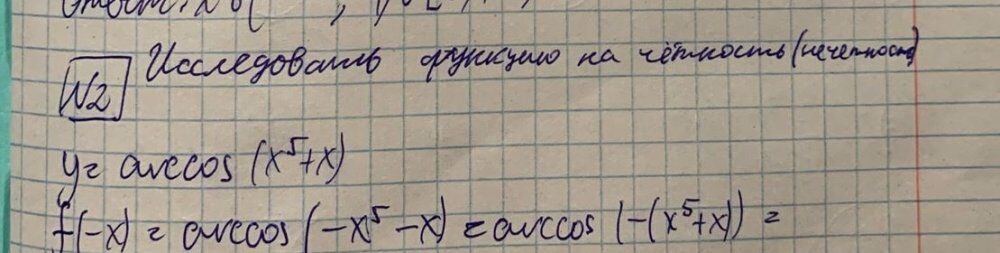 №2 Исследовать функцию на чётность (нечетность)
y = arccos (x⁵+x)
f(-x) = arccos (-x⁵-x) = arccos (-(x⁵+x)) =